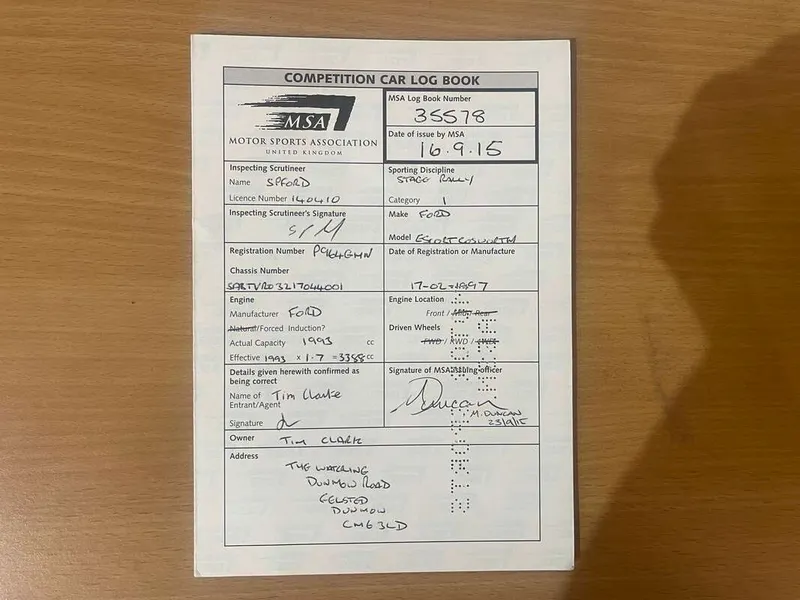 COMPETITION CAR LOG BOOK
MSA
MOTOR SPORTS ASSOCIATION
UNITED KINGDOM
MSA Log Book Number
35578
Date of issue by MSA
16.9.15
Inspecting Scrutineer
Name SPFORD
Licence Number 140410
Sporting Discipline
STAGE RALLY
Category 1
Inspecting Scrutineer's Signature
Make FORD
Model ESCORT COSWORTH
Registration Number P964GMN
Chassis Number
SARTVRO3217044001
Date of Registration or Manufacture
17-02-1997
Engine
Manufacturer FORD
Natural/Forced Induction?
Actual Capacity 1993 cc
Effective 1993 x 1.7 = 3388 cc
Engine Location
Front / Mid / Rear
Driven Wheels
FWD / RWD / 4WD
Details given herewith confirmed as
being correct
Name of Tim Clarke
Entrant/Agent
Signature
Signature of MSA issuing officer
MDuncan
M. DUNCAN
23/9/15
Owner TIM CLARK
Address
THE WATERING
DUNMOW ROAD
FELSTED
DUNMOW
CM6 3LD